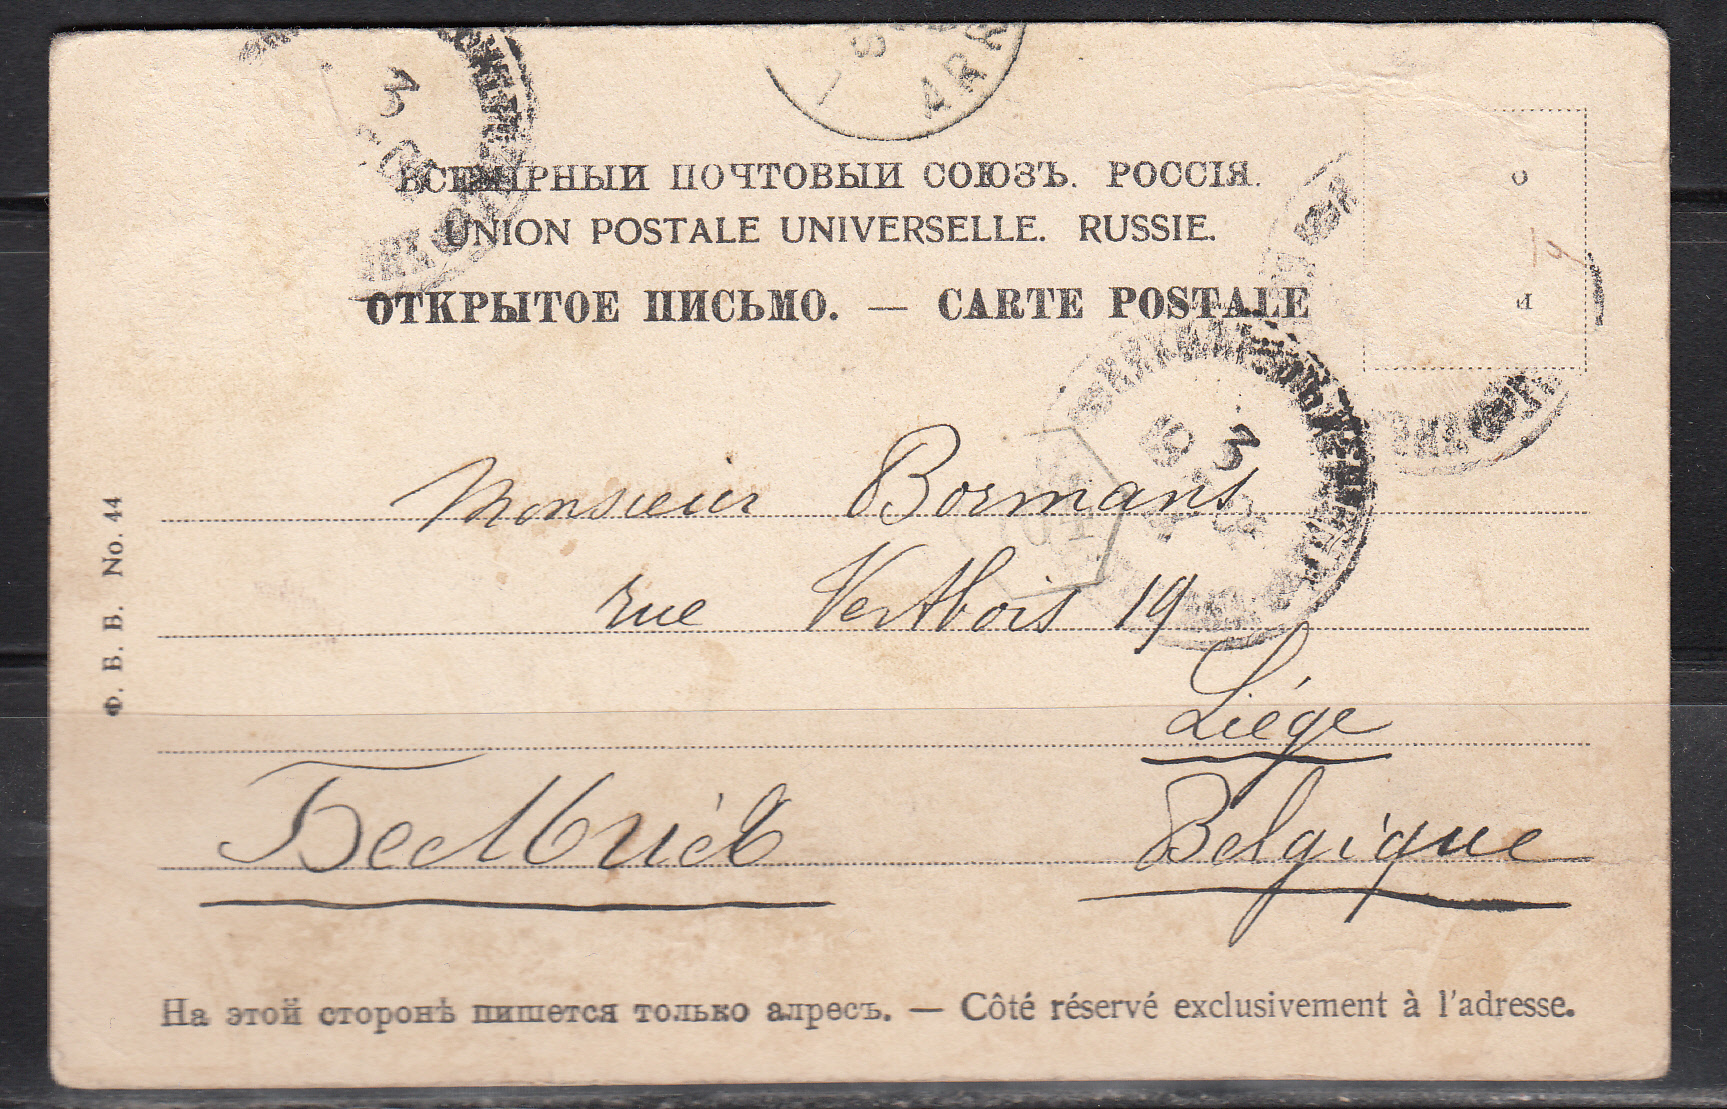 ARR
3
ВСЕМІРНЫЙ ПОЧТОВЫЙ СОЮЗЪ. РОССІЯ.
UNION POSTALE UNIVERSELLE. RUSSIE.
ОТКРЫТОЕ ПИСЬМО. — CARTE POSTALE
3
Monsieur Bormans
rue Vertbois 19
Liége
Бельгіеъ
Belgique
Ф. В. В. No. 44
На этой сторонѣ пишется только адресъ. — Côté réservé exclusivement à l'adresse.